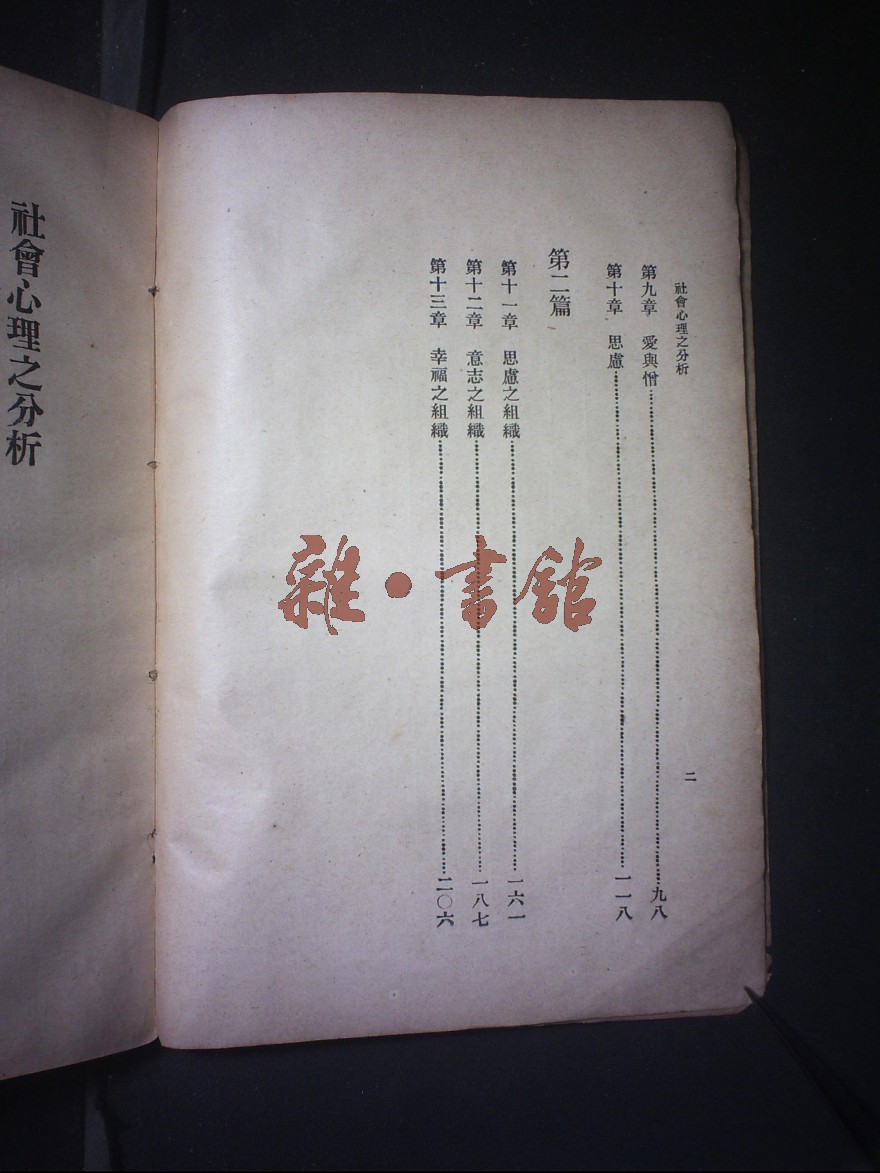 社會心理之分析
二
第九章　愛與憎……九八
第十章　思慮……一一八
第二篇
第十一章　思慮之組織……一六一
第十二章　意志之組織……一八七
第十三章　幸福之組織……二〇六
社會心理之分析
雜・書館